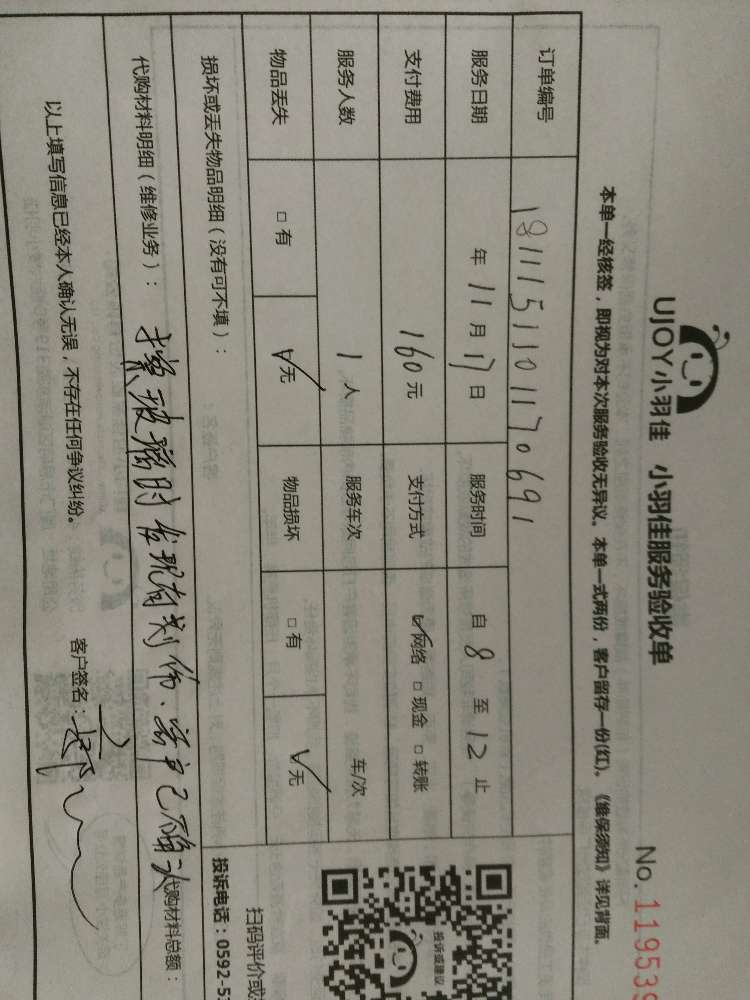 UJOY小羽佳 小羽佳服务验收单
No. 119539
本单一经核签，即视为对本次服务验收无异议。本单一式两份，客户留存一份(红)。《维保须知》详见背面。
订单编号 1811151101170691
服务日期 年 11 月 17 日 服务时间 自 8 至 12 止
支付费用 160元 支付方式 ☑网络 □现金 □转账
服务人数 1 人 服务车次 车/次
物品丢失 □有 ☑无 物品损坏 □有 ☑无
损坏或丢失物品明细（没有可不填）：
代购材料明细（维修业务）： 擦玻璃时发现有划伤、客户已确认
代购材料总额：
以上填写信息已经本人确认无误，不存在任何争议纠纷。
客户签名：
投诉或建议
扫码评价或
投诉电话：0592-5